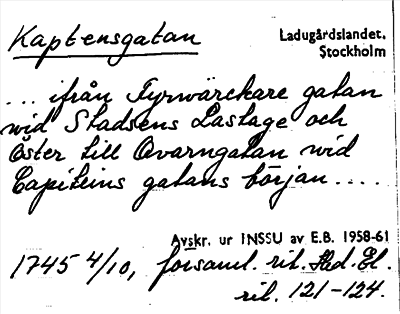 Kaptensgatan
Ladugårdslandet.
Stockholm
... ifrån Fyrwärckare gatan
wid Stadsens Lastage och
Öster till Qvarngatan wid
Capiteins gatans början .....
Avskr. ur INSSU av E.B. 1958-61
1745 4/10, församl. rit. Hed. El.
rit. 121-124.